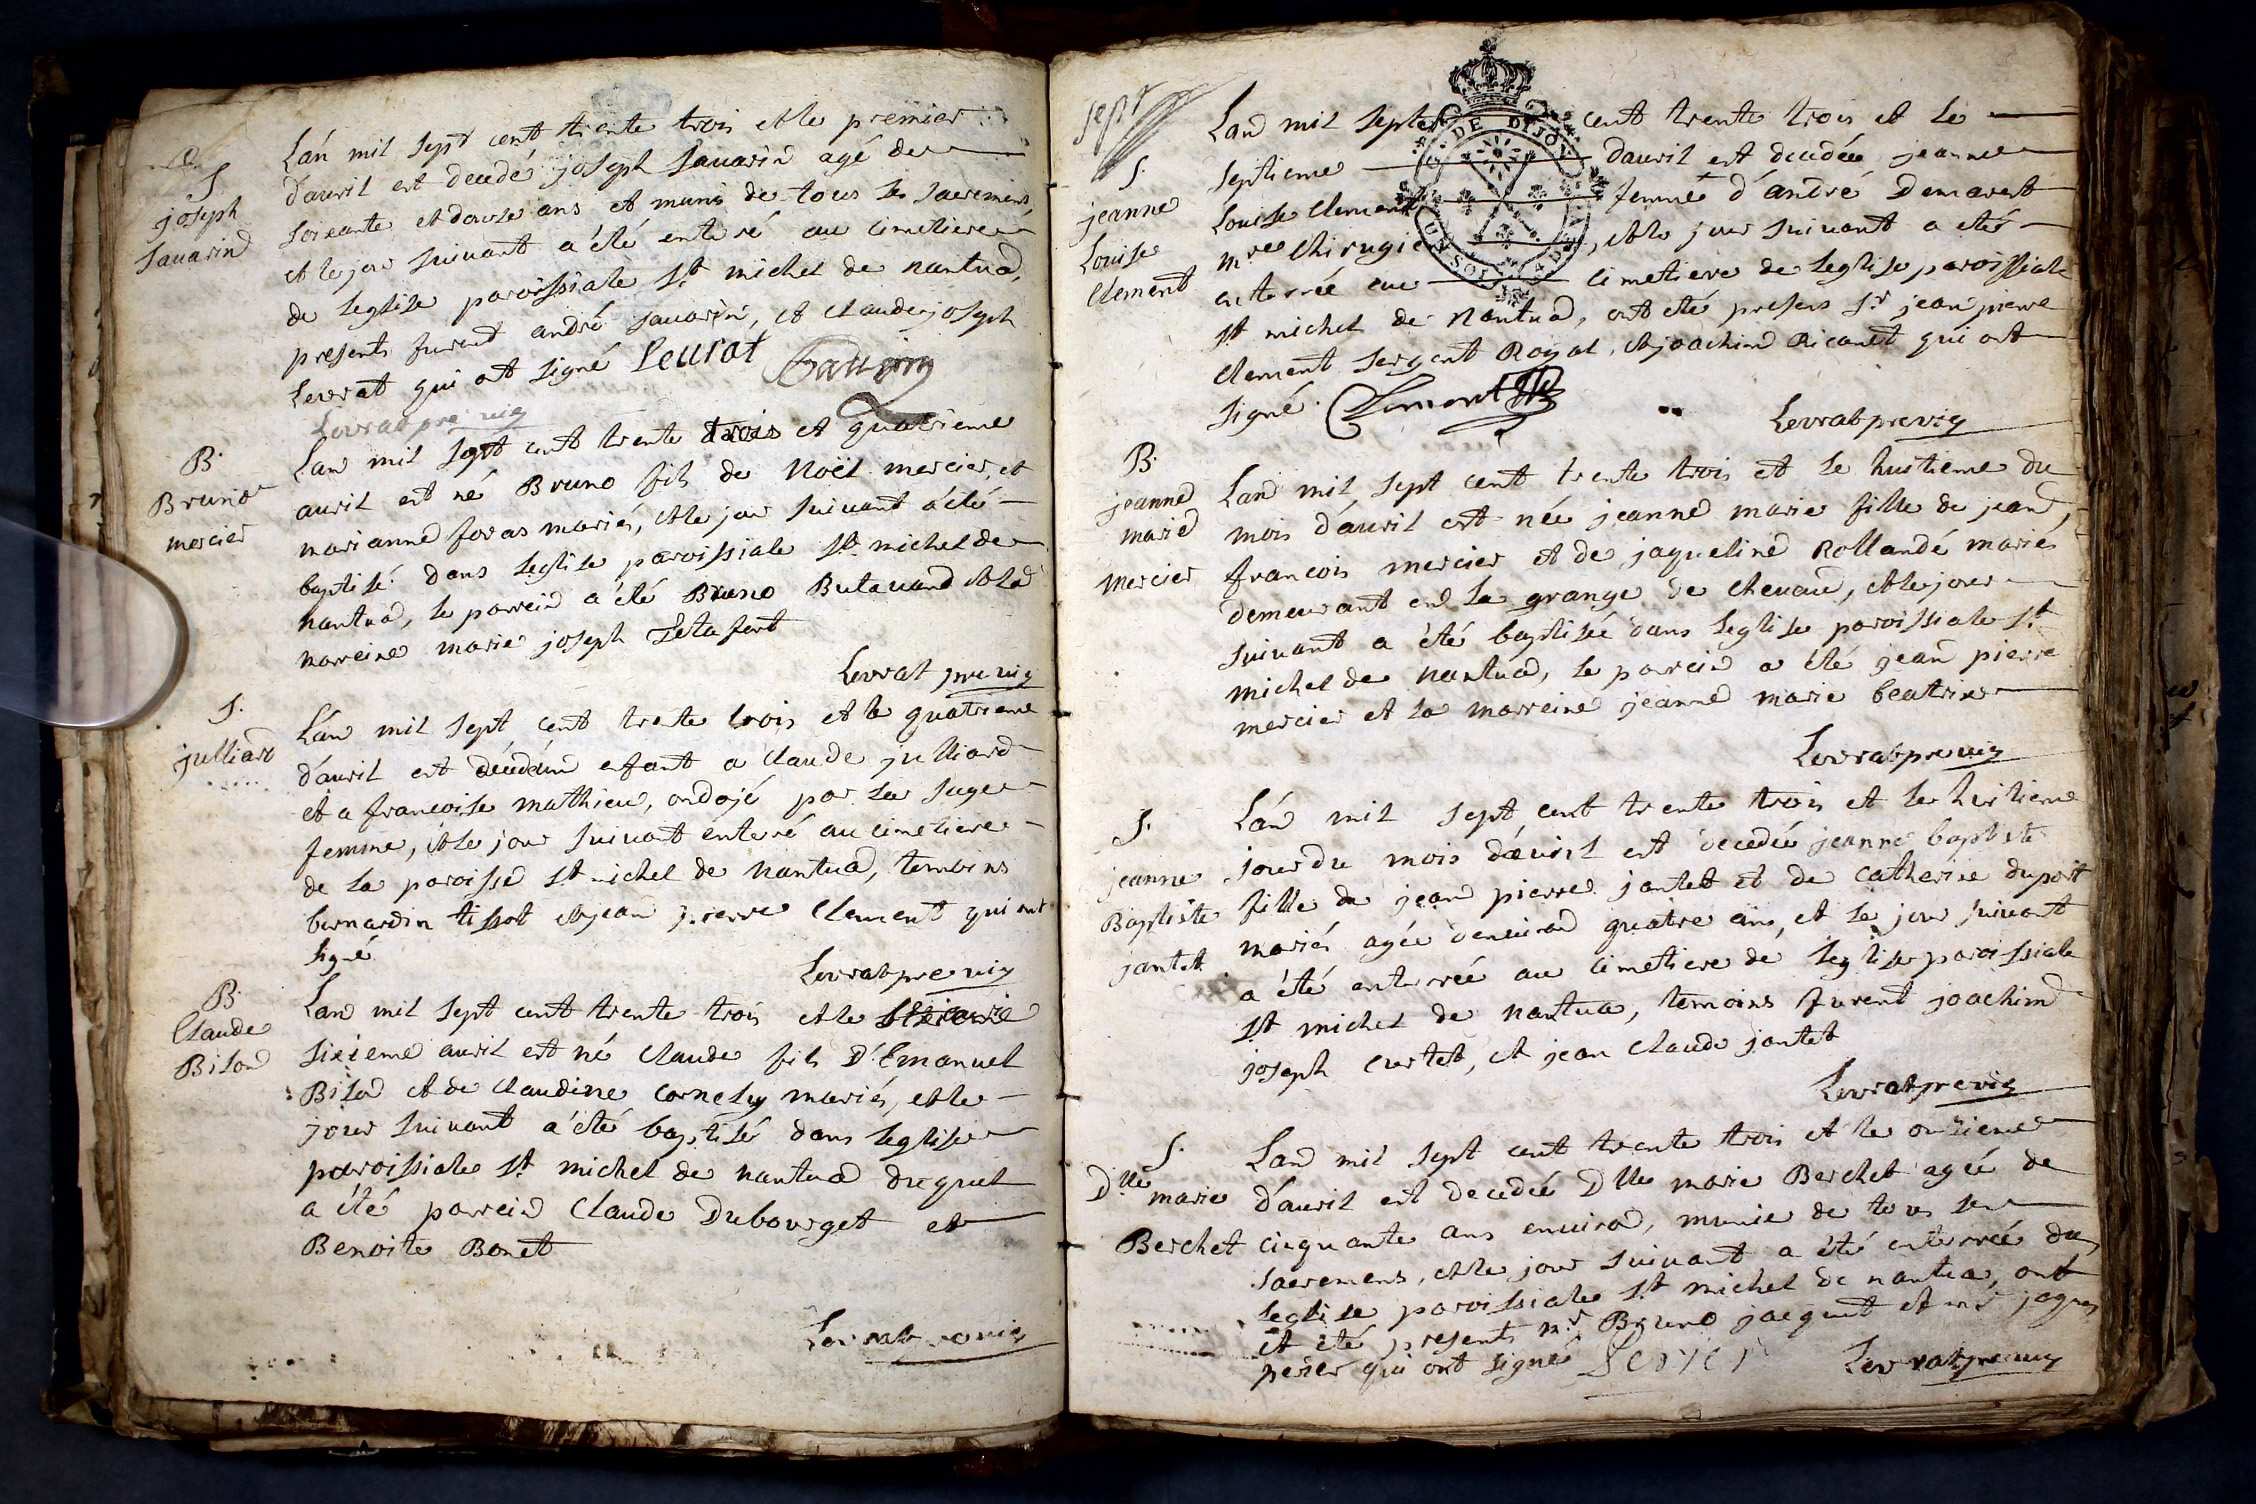 S
joseph
sauarin
Lán mil sept cent trente trois et le premier
dauril est decedé joseph sauarin agé de
soixante et douze ans et muni de tous les sacremens,
et le jour suiuant a été enterré au cimetiere
de leglise paroissiale st michel de nantua,
presents furent andré sauarin, et claude joseph
Leurat qui ont signé Leurat Sauarin
Levrat pre vig
B.
Bruno
mercier
Lan mil sept cent trente trois et quatrieme
auril est né Bruno fils de Noël mercier et
marianne foras mariés, et le jour suiuant a été
baptisé dans leglise paroissiale st. michel de
nantua, le parrein a été Bruno Butauand et la
marreine marie joseph
Levrat pre vig
S.
julliard
Lán mil sept cent trente trois et le quatrieme
dauril est decedé un enfant a claude julliard
et a francoise mathieu, ondojé par la sage
femme, et le jour suiuant enterré au cimetiere
de la paroisse st michel de nantua, temoins
bernardin tissot et jean pierre clement qui ont
signé
Levrat pre vig
B.
Claude
Bilon
Lan mil sept cent trente trois et le
sixieme auril est né claude fils d'Emanuel
Bilon et de claudine cornely mariés, et le
jour suiuant a été baptisé dans leglise
paroissiale st michel de nantua duquel
a été parrein Claude Dubourget et
Benoite Bonet
Levrat pre vig
sept
UN SOL
G. DE DIJON
S.
jeanne
Louise
clement
Lan mil sept cent trente trois et le
septieme dauril est decedée jeanne
Louise clement femme d'andré Demarest
mre chirugien, et le jour suiuant a eté
enterrée au cimetiere de leglise paroissiale
st michel de Nantua, ont eté presens sr jean pierre
clement sergent Royal, et joachim Ricanet qui ont
signé. Clement
Levrat pre vig
B.
jeanne
marie
mercier
Lan mil sept cent trente trois et le huitieme du
mois dauril est née jeanne marie fille de jean
francois mercier et de jaqueline Rollande mariés
demeurant en la grange de cheuau, et le jour
suiuant a été baptisée dans leglise paroissiale st
michel de nantua, le parrein a été jean pierre
mercier et la marreine jeanne marie beatrix
Levrat pre vig
S.
jeanne
Baptiste
jantet
Lán mil sept cent trente trois et le huitieme
jour du mois dauril est decedée jeanne baptiste
fille de jean pierre jantet et de catherine duport
mariés agée denuiron quatre ans, et le jour suiuant
a été enterrée au cimetiere de leglise paroissiale
st michel de nantua, temoins furent joachim
joseph curtet, et jean claude jantet
Levrat pre vig
S.
Dlle marie
Berchet
Lan mil sept cent trente trois et le onzieme
dauril est decedée Dlle marie Berchet agée de
cinquante ans enuiron, munie de tous les
sacremens, et le jour suiuant a été enterrée dans
leglise paroissiale st michel de nantua, ont
et été presents mr Bruno jacquet et mr jaques
perier qui ont signé Perier
Levrat pre vig